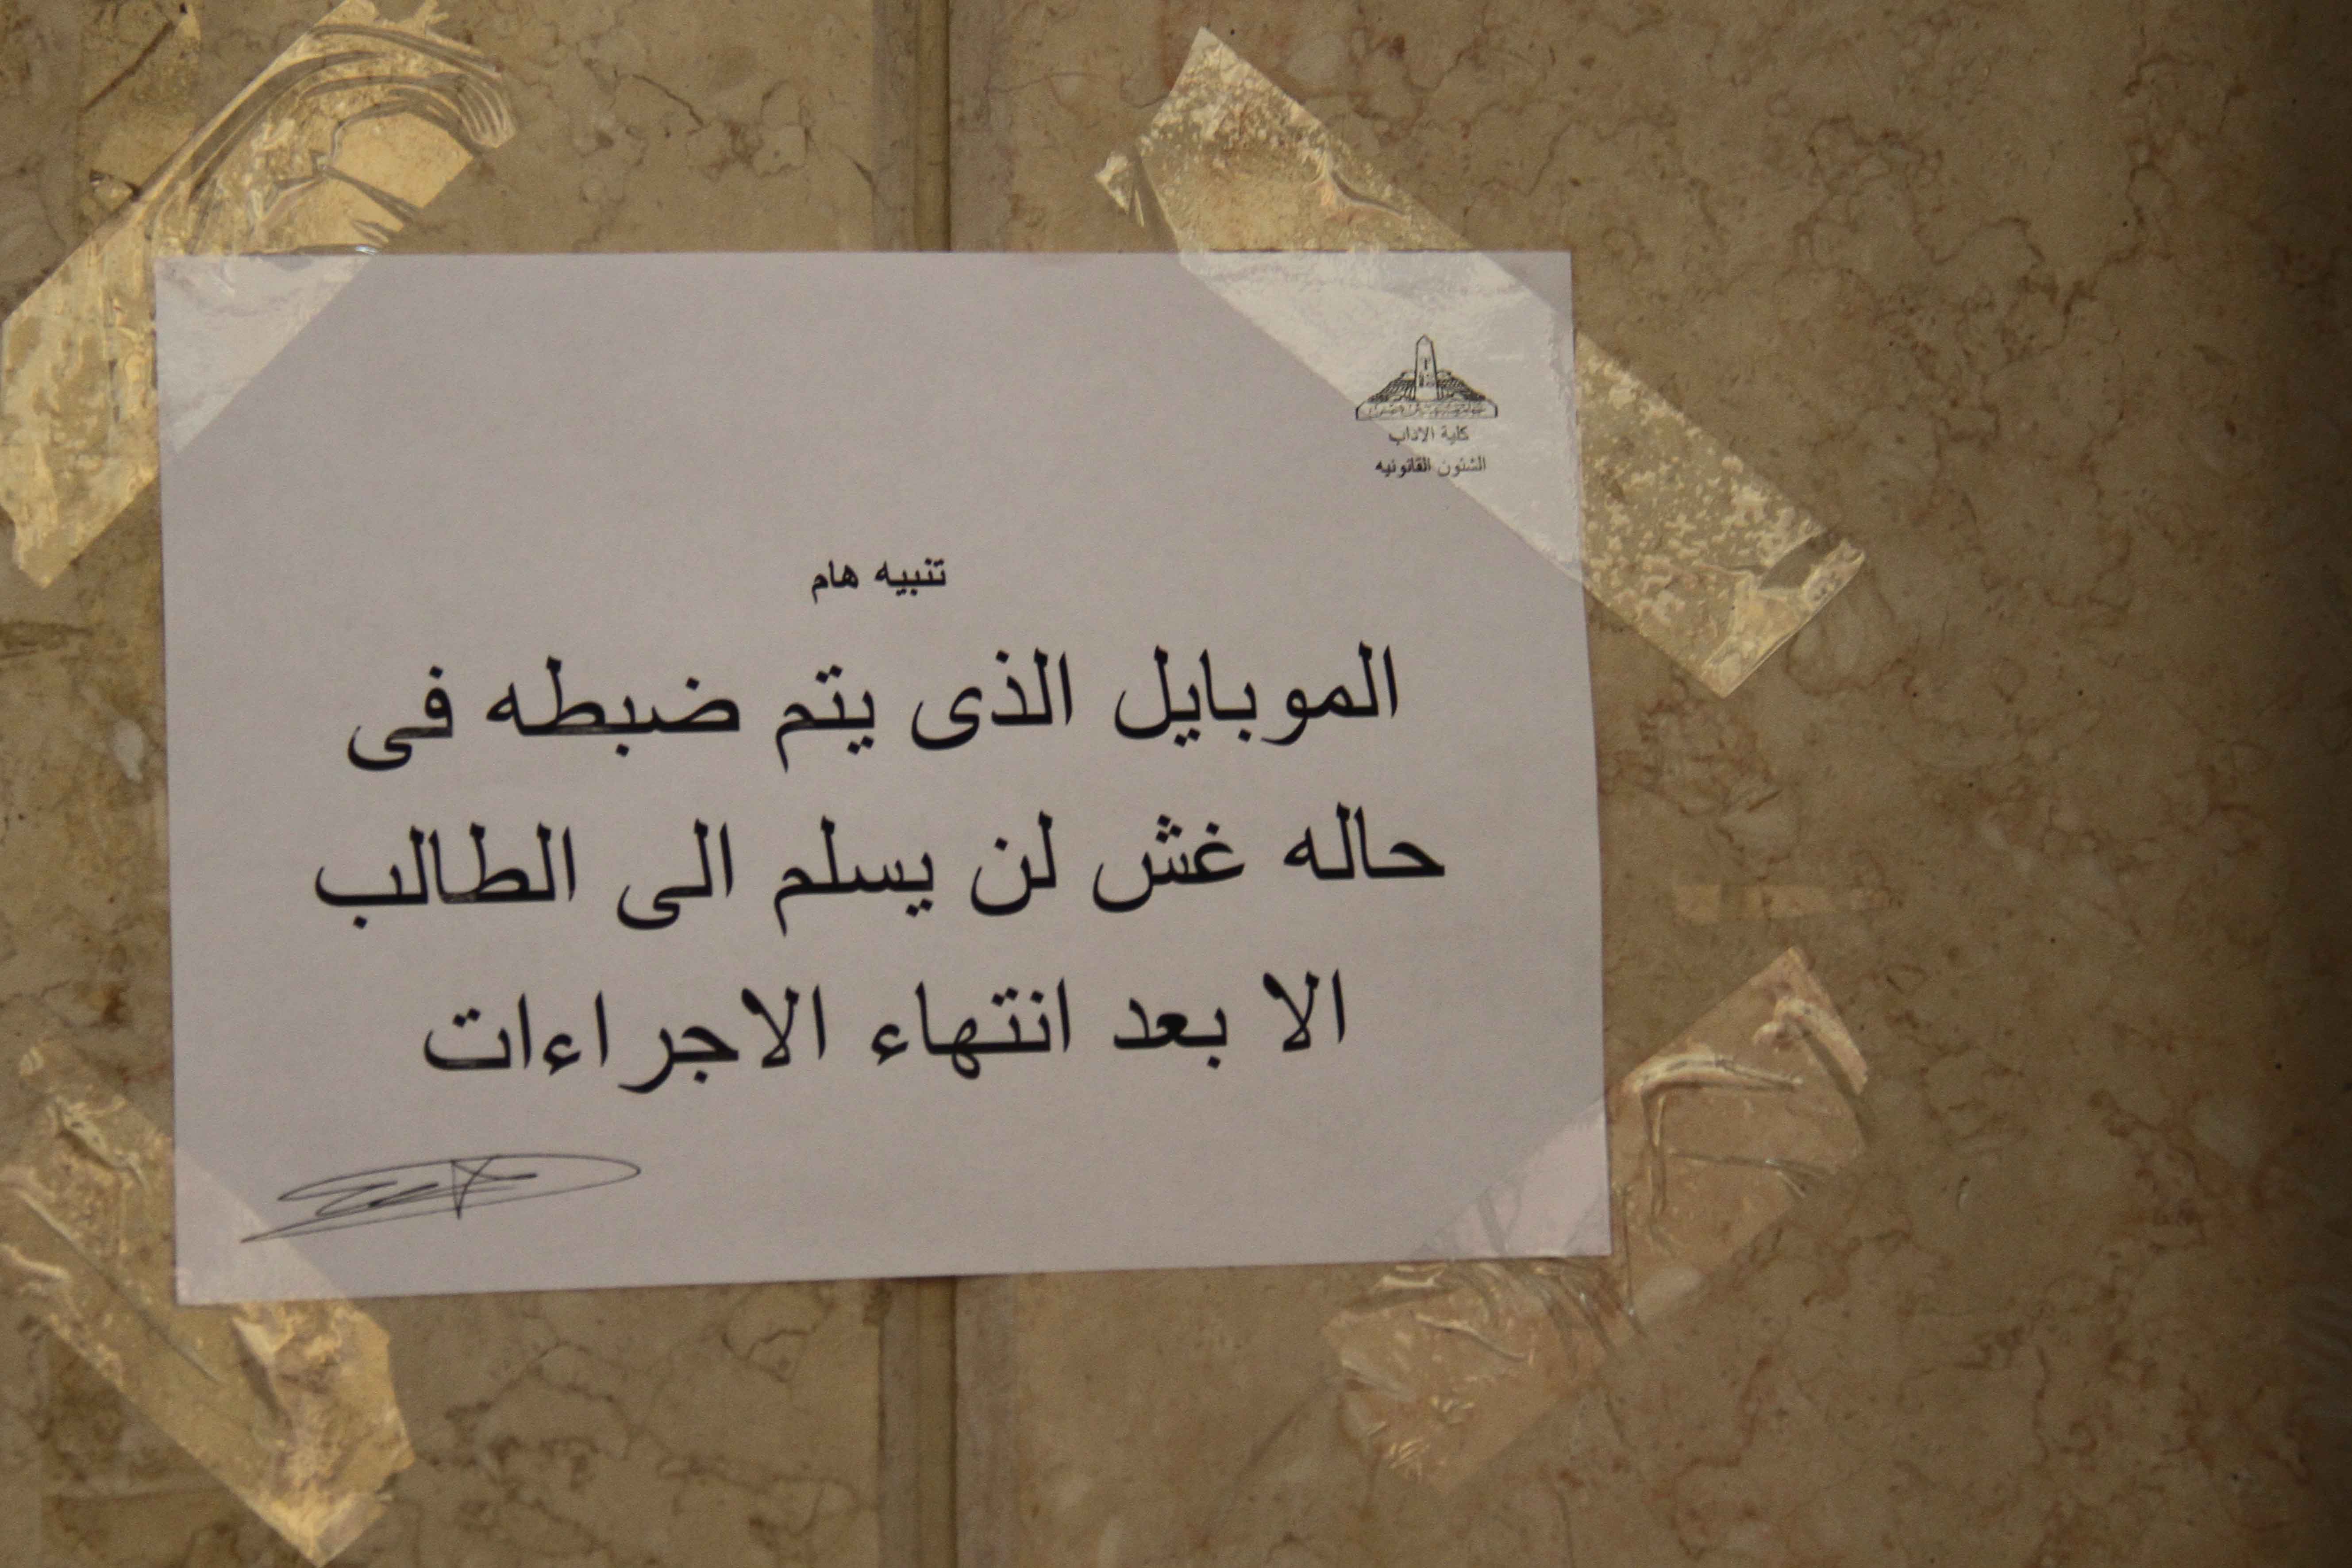 كلية الاداب
الشئون القانونيه
تنبيه هام
الموبايل الذى يتم ضبطه فى
حاله غش لن يسلم الى الطالب
الا بعد انتهاء الاجراءات